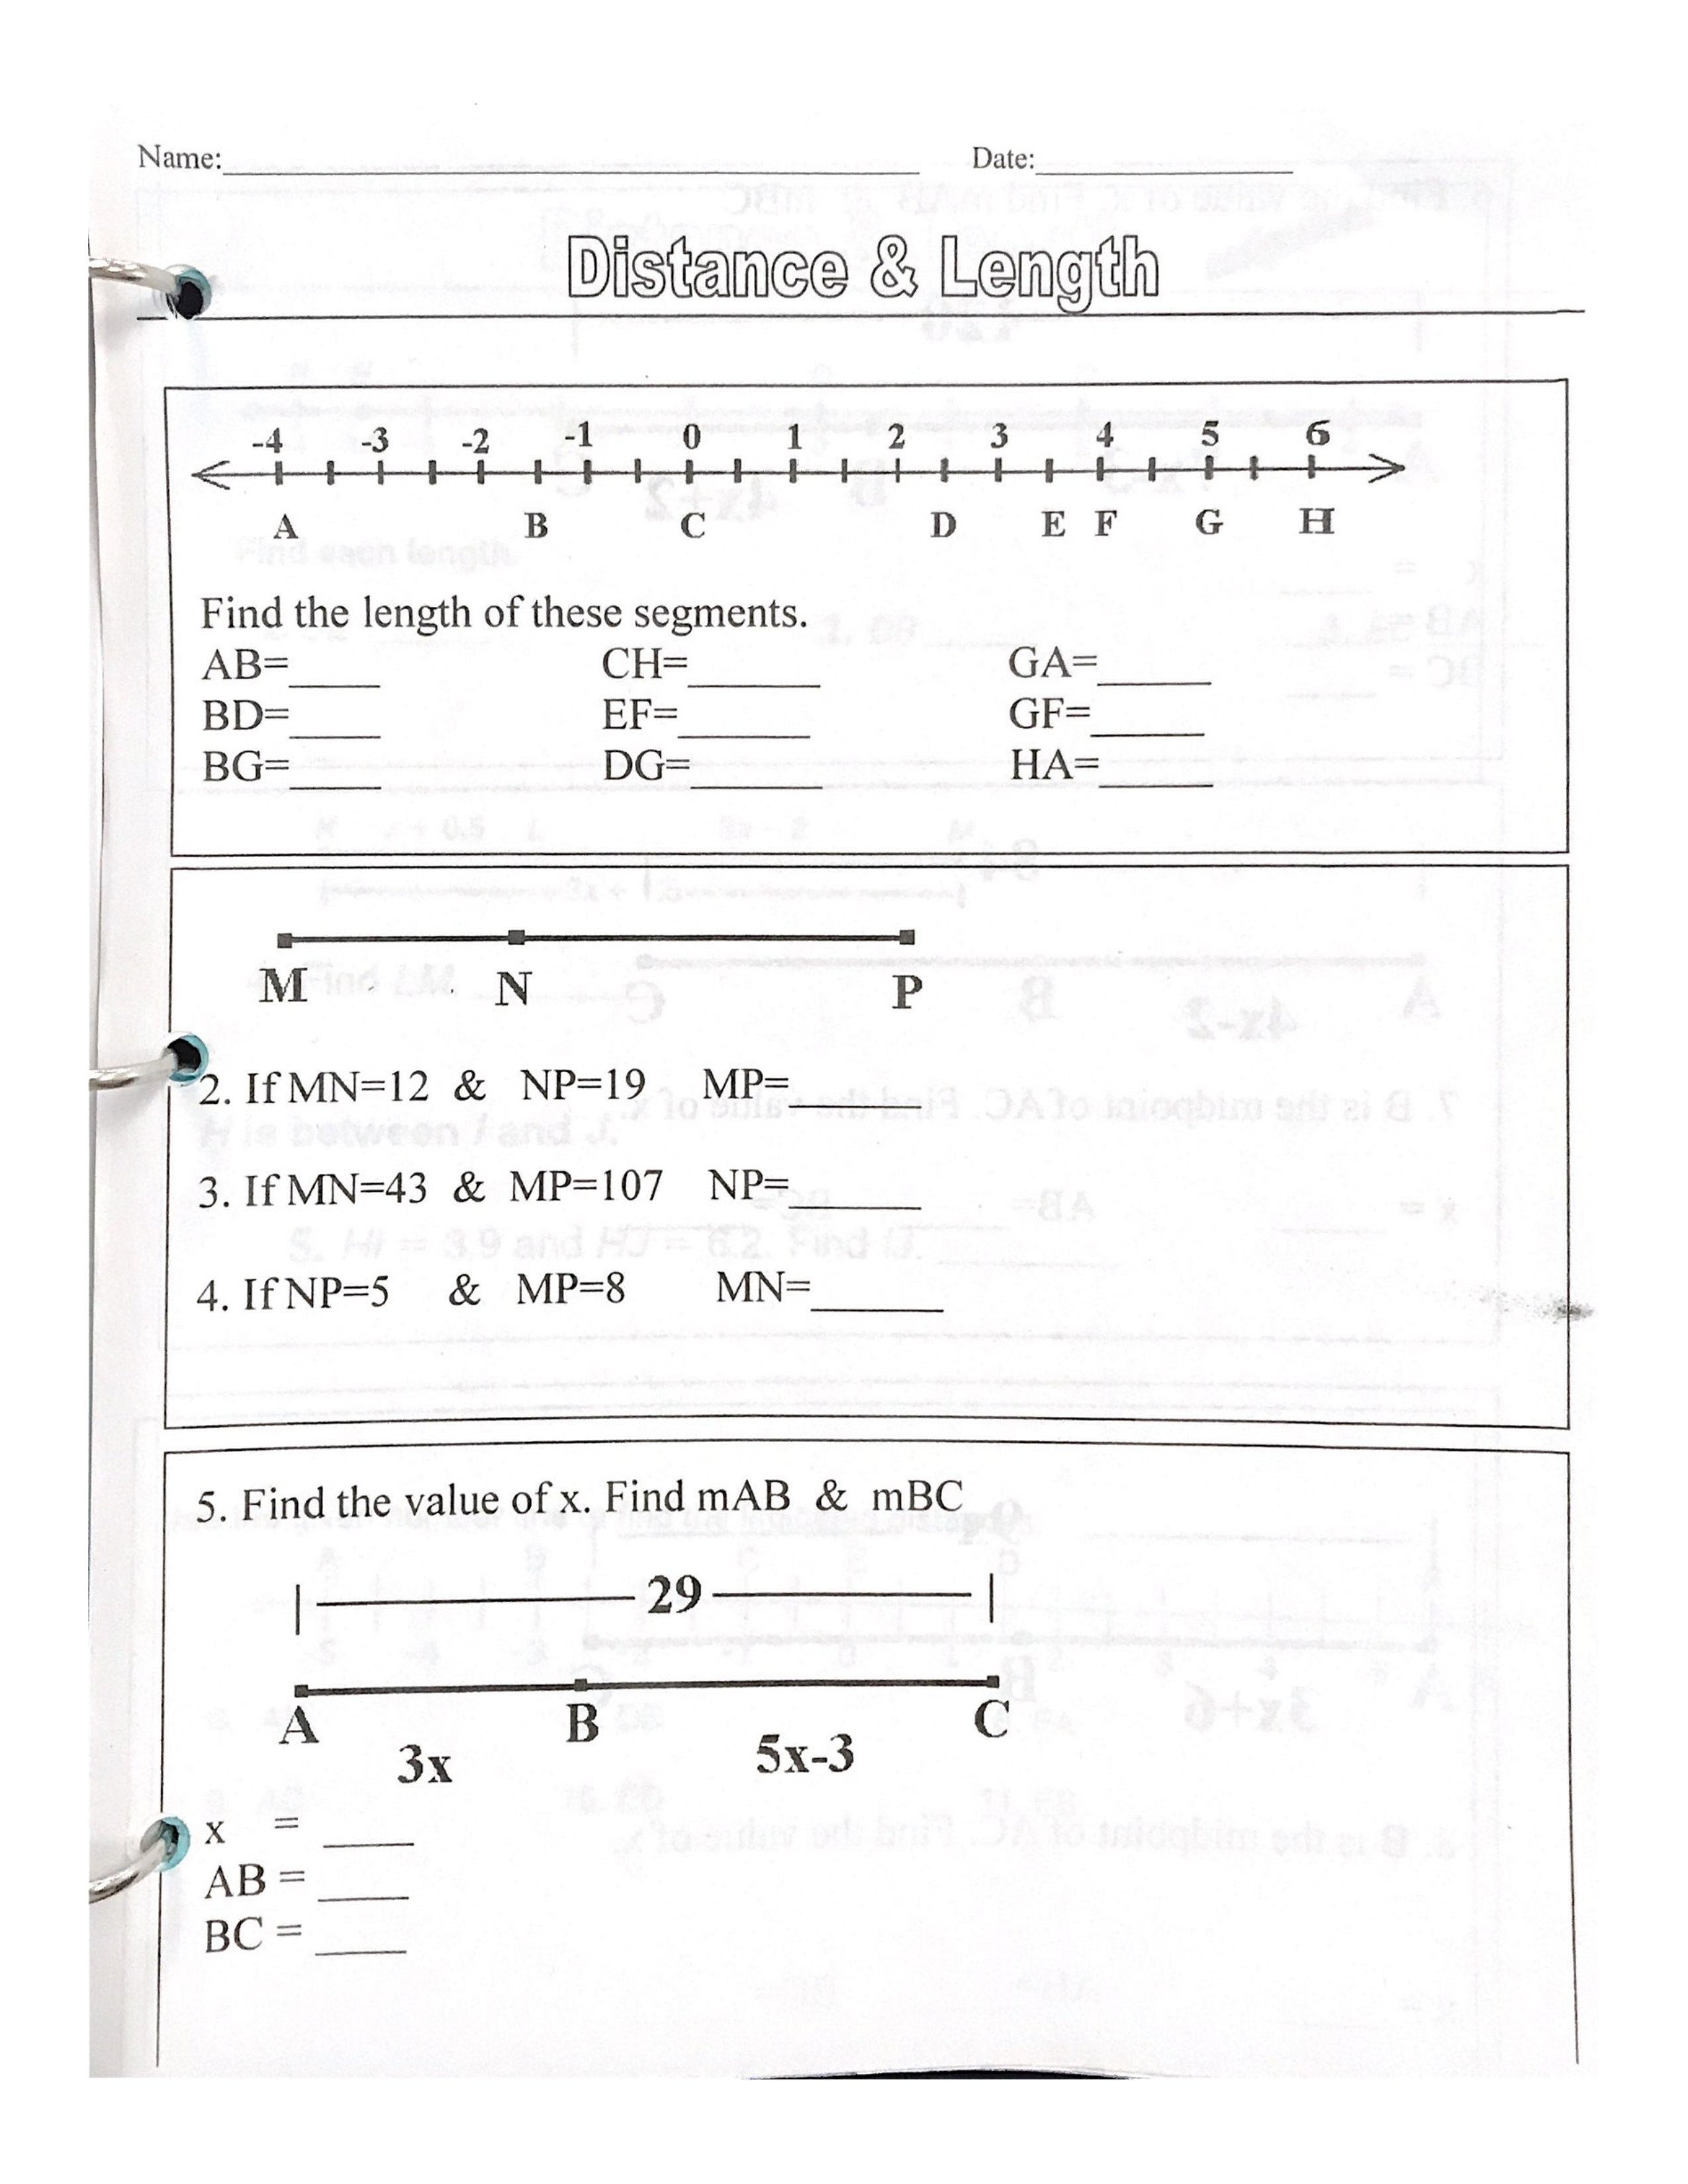 Name:____ Date:____
Distance & Length
-4 -3 -2 -1 0 1 2 3 4 5 6
A B C D E F G H
Find the length of these segments.
AB=____ CH=____ GA=____
BD=____ EF=____ GF=____
BG=____ DG=____ HA=____
M N P
2. If MN=12 & NP=19 MP=____
3. If MN=43 & MP=107 NP=____
4. If NP=5 & MP=8 MN=____
5. Find the value of x. Find mAB & mBC
29
A B C
3x 5x-3
x = ____
AB = ____
BC = ____